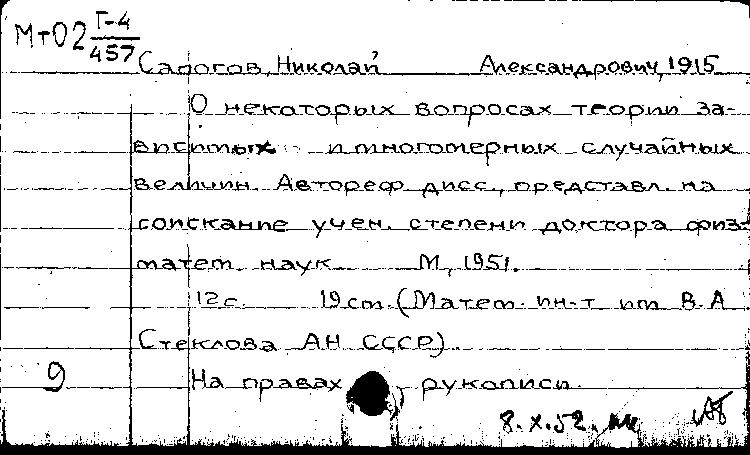 МтО2 Г-4
457
Сапогов, Николай Александрович, 1915
О некоторых вопросах теории за-
висимых и многомерных случайных
величин. Автореф. дисс., представл. на
соискание учен. степени доктора физ-
матем. наук М, 1951.
12с. 19 ст. (Матем. ин-т им В. А
Стеклова АН СССР).
9 На правах рукописи.
8.X.52.